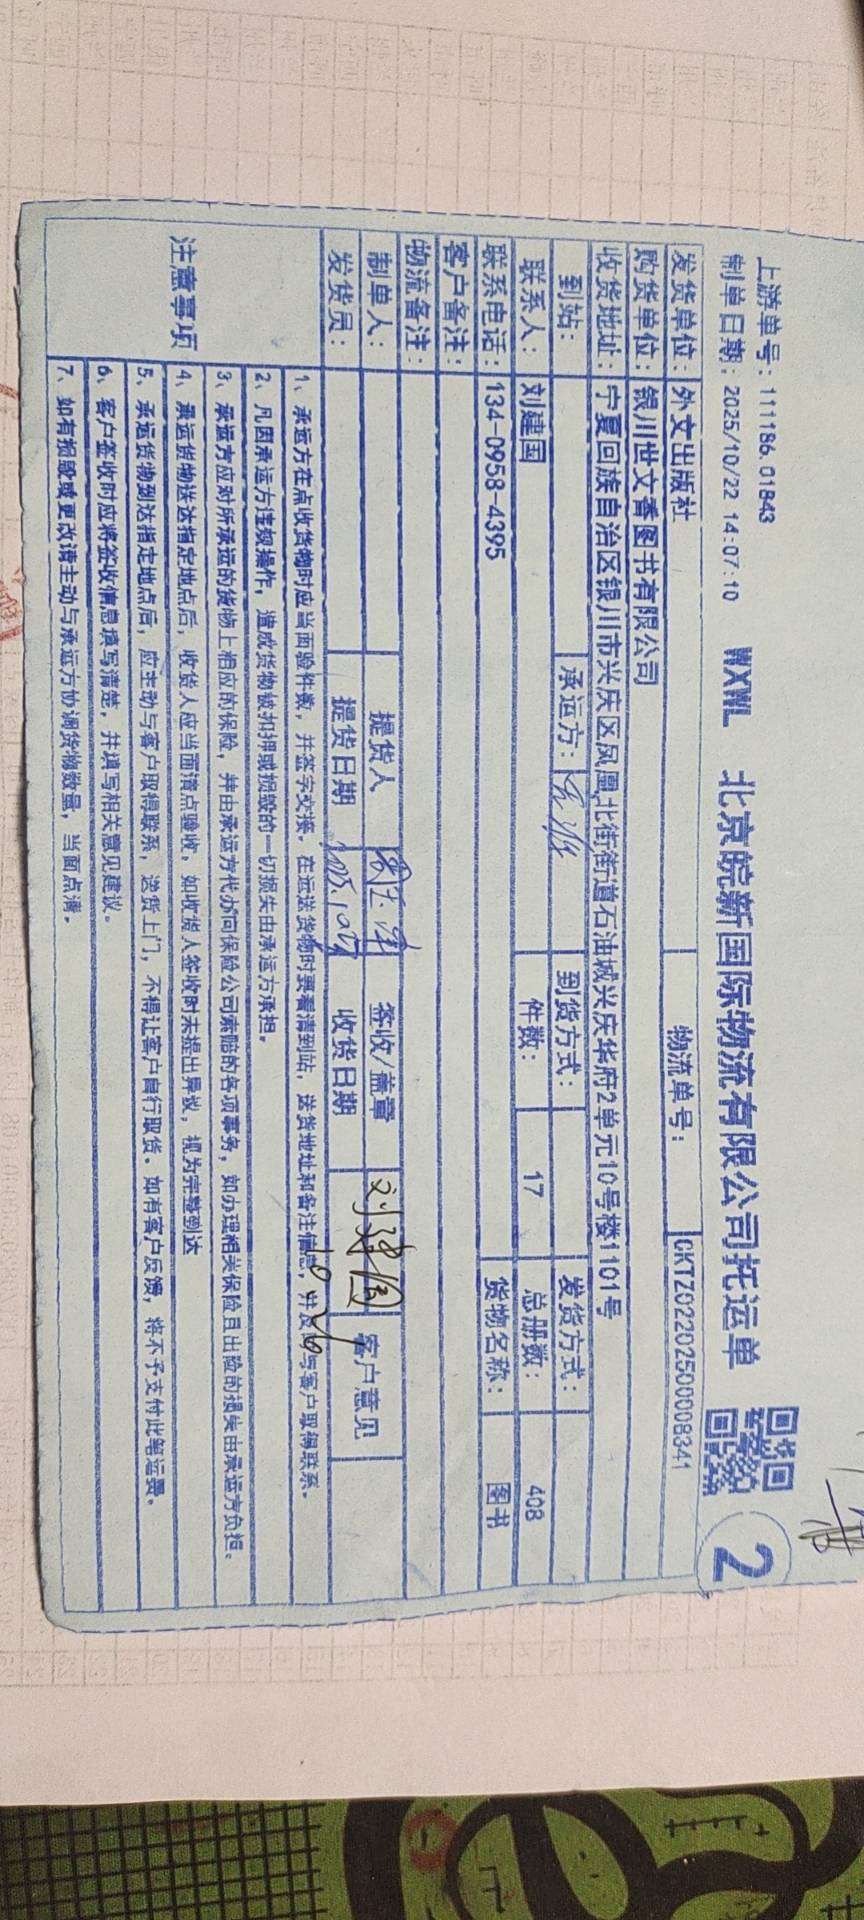 上游单号：111186.01843
制单日期：2025/10/22 14:07:10
WXWL 北京皖新国际物流有限公司托运单
2
发货单位：外文出版社 物流单号： CKTZ02202500008341
购货单位：银川世文香图书有限公司
收货地址：宁夏回族自治区银川市兴庆区凤凰北街街道石油城兴庆华府2单元10号楼1101号
到站： 承运方： 到货方式： 发货方式：
联系人：刘建国 件数：17 总册数：408
联系电话：134-0958-4395 货物名称：图书
客户备注：
物流备注：
制单人： 提货人 签收/盖章 刘建国 客户意见
发货员： 提货日期 收货日期 10.26
注意事项
1、承运方在点收货物时应当面验件数，并签字交接。在运送货物时要看清到站，送货地址和备注信息，并及时与客户取得联系。
2、凡因承运方违规操作，造成货物被扣押或损毁的一切损失由承运方承担。
3、承运方应对所承运的货物上相应的保险，并由承运方代办向保险公司索赔的各项事务，如办理相关保险且出险的损失由承运方负担。
4、承运货物送达指定地点后，收货人应当面清点验收。如收货人签收时未提出异议，视为完整到达
5、承运货物到达指定地点后，应主动与客户取得联系，送货上门，不得让客户自行取货。如有客户反馈，将不予支付此笔运费。
6、客户签收时应将签收信息填写清楚，并填写相关意见建议。
7、如有损毁或更改请主动与承运方协调货物数量，当面点清。